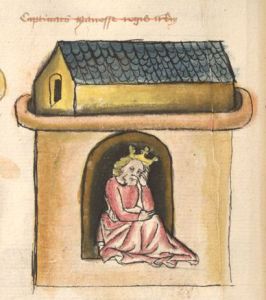 Captiuitas manasse regis